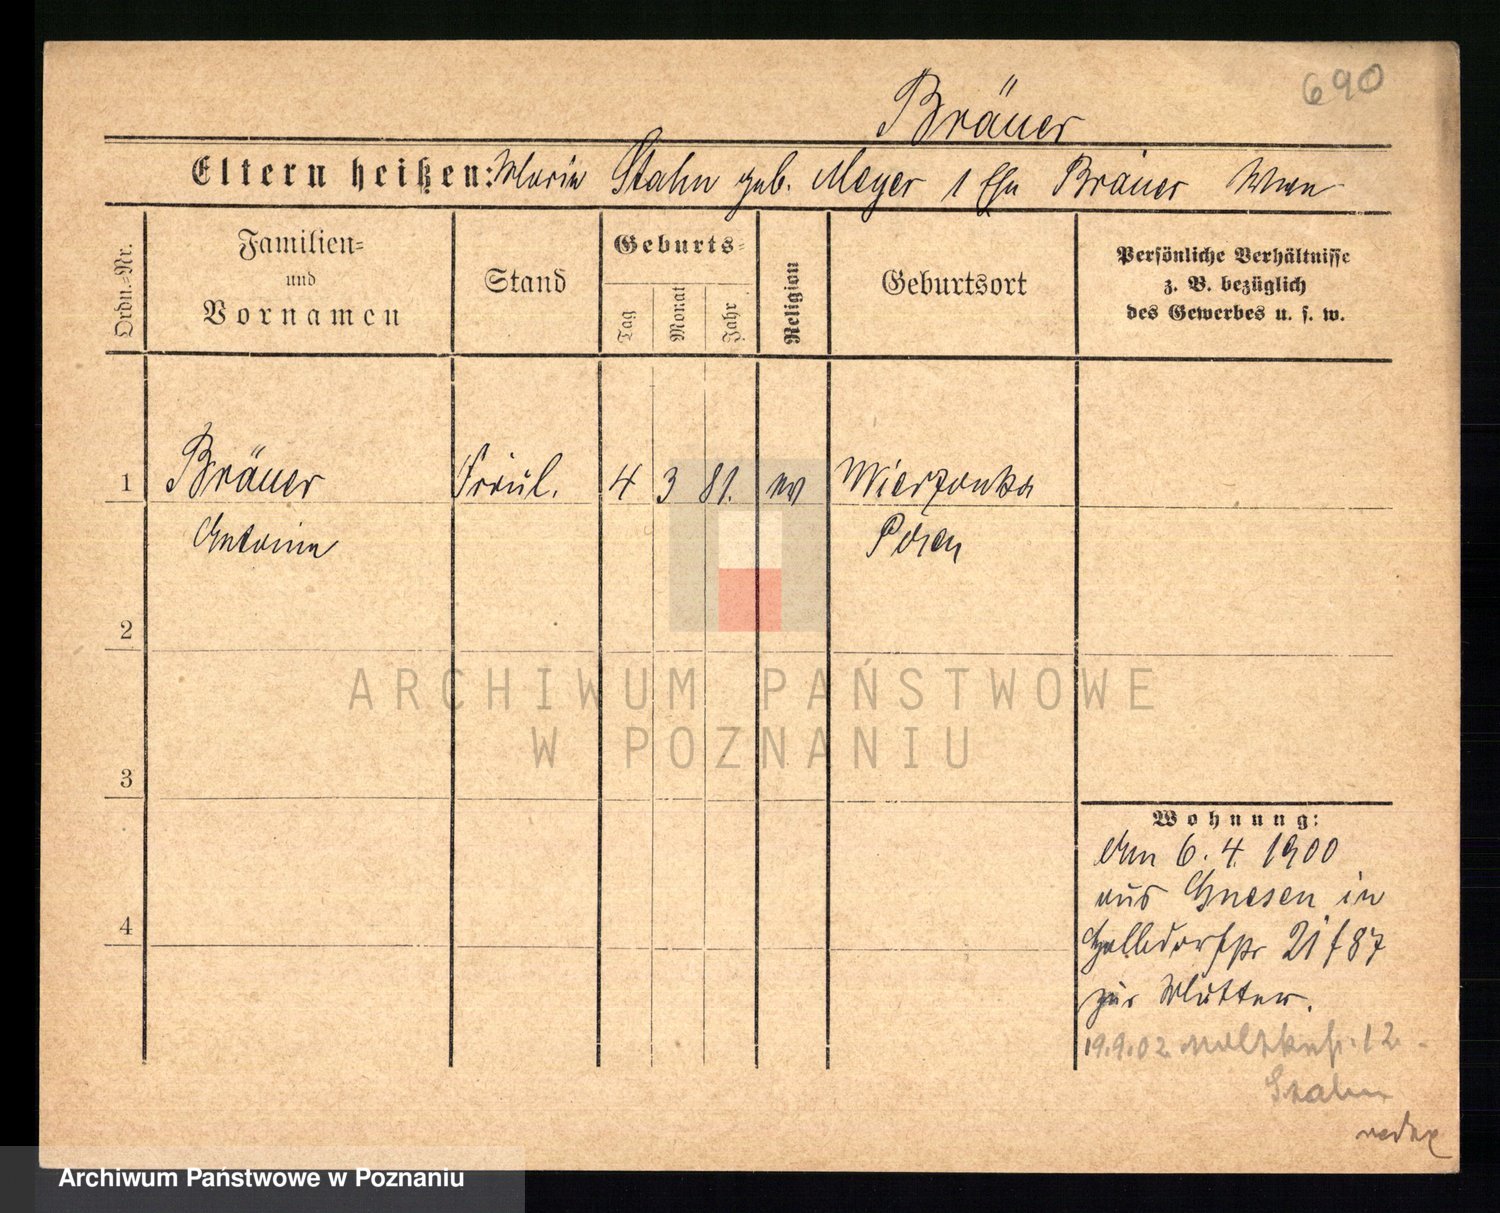 690
Bräuer
Eltern heißen: Maria Stahn geb. Meyer 1 Ehe Bräuer
Ordn.-Nr.
Familien-
und
Vornamen
Stand
Geburts-
Tag
Monat
Jahr
Religion
Geburtsort
Persönliche Verhältnisse
z. B. bezüglich
des Gewerbes u. s. w.
1 Bräuer Fräul. 4 3 81. ev Wierzonka
Posen
2
3
4
Wohnung:
Am 6. 4. 1900
aus Gnesen in
21
zur Mutter.
19.9.02 12
Stahn
ARCHIWUM PAŃSTWOWE
W POZNANIU
Archiwum Państwowe w Poznaniu